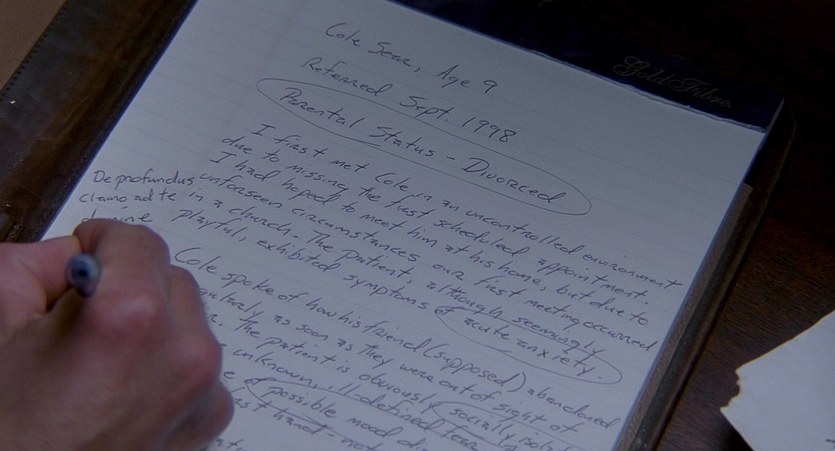 Gold Fibre
Cole Sear, Age 9
Referred Sept. 1998
Parental Status - Divorced
I first met Cole in an uncontrolled environment
due to missing the first scheduled appointment.
I had hoped to meet him at his home, but due to
unforseen circumstances our first meeting occurred
in a church. The patient, although seemingly
playful, exhibited symptoms of acute anxiety.
De profundus
clamo ad te
domine
Cole spoke of how his friend (supposed) abandoned
as soon as they were out of sight of
The patient is obviously socially
unknown, ill-defined fear
possible mood